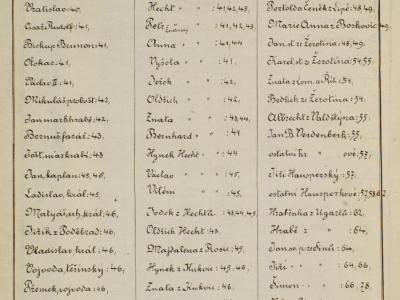 Vratislav: 40,
Císař Rudolf: 41,
Biskup Brunon: 41,
Otokar: 41,
Václav II: 41,
Mikuláš probošt: 42,
Jan markhrabě: 42,
Bernard farář: 43,
Jošt markrabí: 43
Jan, kaplan: 43, 46,
Ladislav, král: 45,
Matyáš, uh. král: 46,
Jiřík z Poděbrad: 46,
Vladislav král: 46,
Vojvoda těšínský: 46,
Přemek, vojvoda: 46,
Hecht " " : 41, 42, 43,
Petr " " : 41, 42, 43,
Anna " " : 41, 44
Vyšota " " : 41,
Ješek " " : 42,
Oldřich " " : 42,
Znata " " : 43, 44,
Bernhard " " : 44
Hynek Hecht " " : 44
Václav " " : 45,
Vilém " " : 45,
Jodok z Hechtů : 43, 44, 45,
Oldřich Hecht : 43,
Majdalena z Rosic : 45,
Hynek z Kukvic : 45, 46,
Znata z Kukvic : 46,
Pertold a Čeněk z Lipé : 48, 49,
Marie Anna z Boskovic : 49,
Jan st. ze Žerotína : 48, 49,
Karel st. ze Žerotína : 54, 55,
Znata z Lom. a Rit. : 54,
Bedřich ze Žerotína : 54,
Albrecht z Valdštýna : 55,
Jan B. Verdenberk : 55,
ostatní hr. " ové : 57,
Jiří Hausperský : 57,
ostatní Hausperkové : 57, 58, 62
Hraběnka z Ugartů : 62
Hrabě " : 64,
Jan sv. p. ze Sinů : 64,
Jiří " " : 64, 66,
Šimon " " : 66, 78,